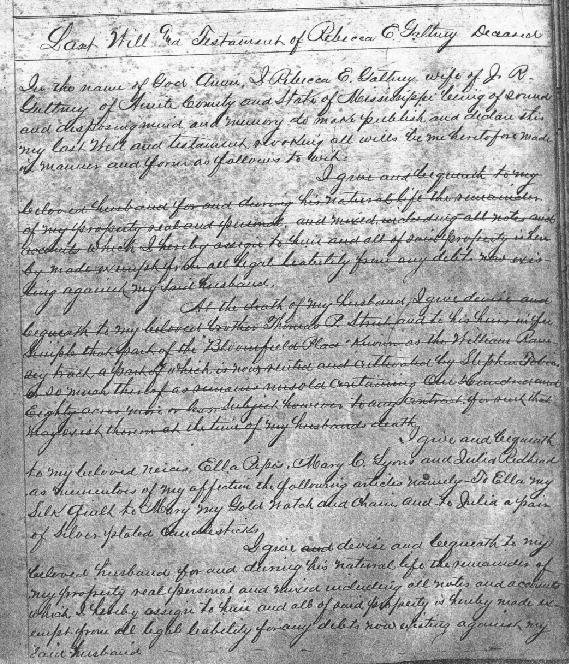 Last Will and Testament of Rebecca E. Galtney Deceased
In the name of God Amen, I Rebecca E. Galtney wife of J. R.
Galtney of County and State of Mississippi being of sound
and disposing mind and memory do make publish and declare this
my last Will and testament revoking all wills be me heretofore made
in manner and form as follows to wit:
I give and bequeath to my
beloved husband for and during his natural life the remainder
of my property real and personal and mixed including all notes and
accounts which I hereby assign to him and all of said property is here
by made exempt from all legal leability from any debts now exis-
ting against my said husband.
At the death of my husband, I give devise and
bequeath to my beloved brother Thomas P. and to his heirs in fee
simple that part of the "Bloomfield Place" known as the William
tract a part of which is now rented and cultivated by Stephen
or so much thereof as remains unsold containing One Hundred and
Eighty acres more or less subject however to any contract for such that
may exist thereon at the time of my husbands death,
I give and bequeath
to my beloved neices, Ella Pipes, Mary C. Lyons and Julia Redhead
as mementoes of my affection the following articles namely - To Ella my
Silk Quilt to Mary my Gold Watch and Chain and to Julia a pair
of Silver plated Candlesticks
I give and devise and bequeath to my
beloved husband for and during his natural life the remainder of
my property real personal and mixed including all notes and accounts
which I hereby assign to him and all of said property is hereby made ex-
empt from all legal leability for any debts now existing against my
said husband